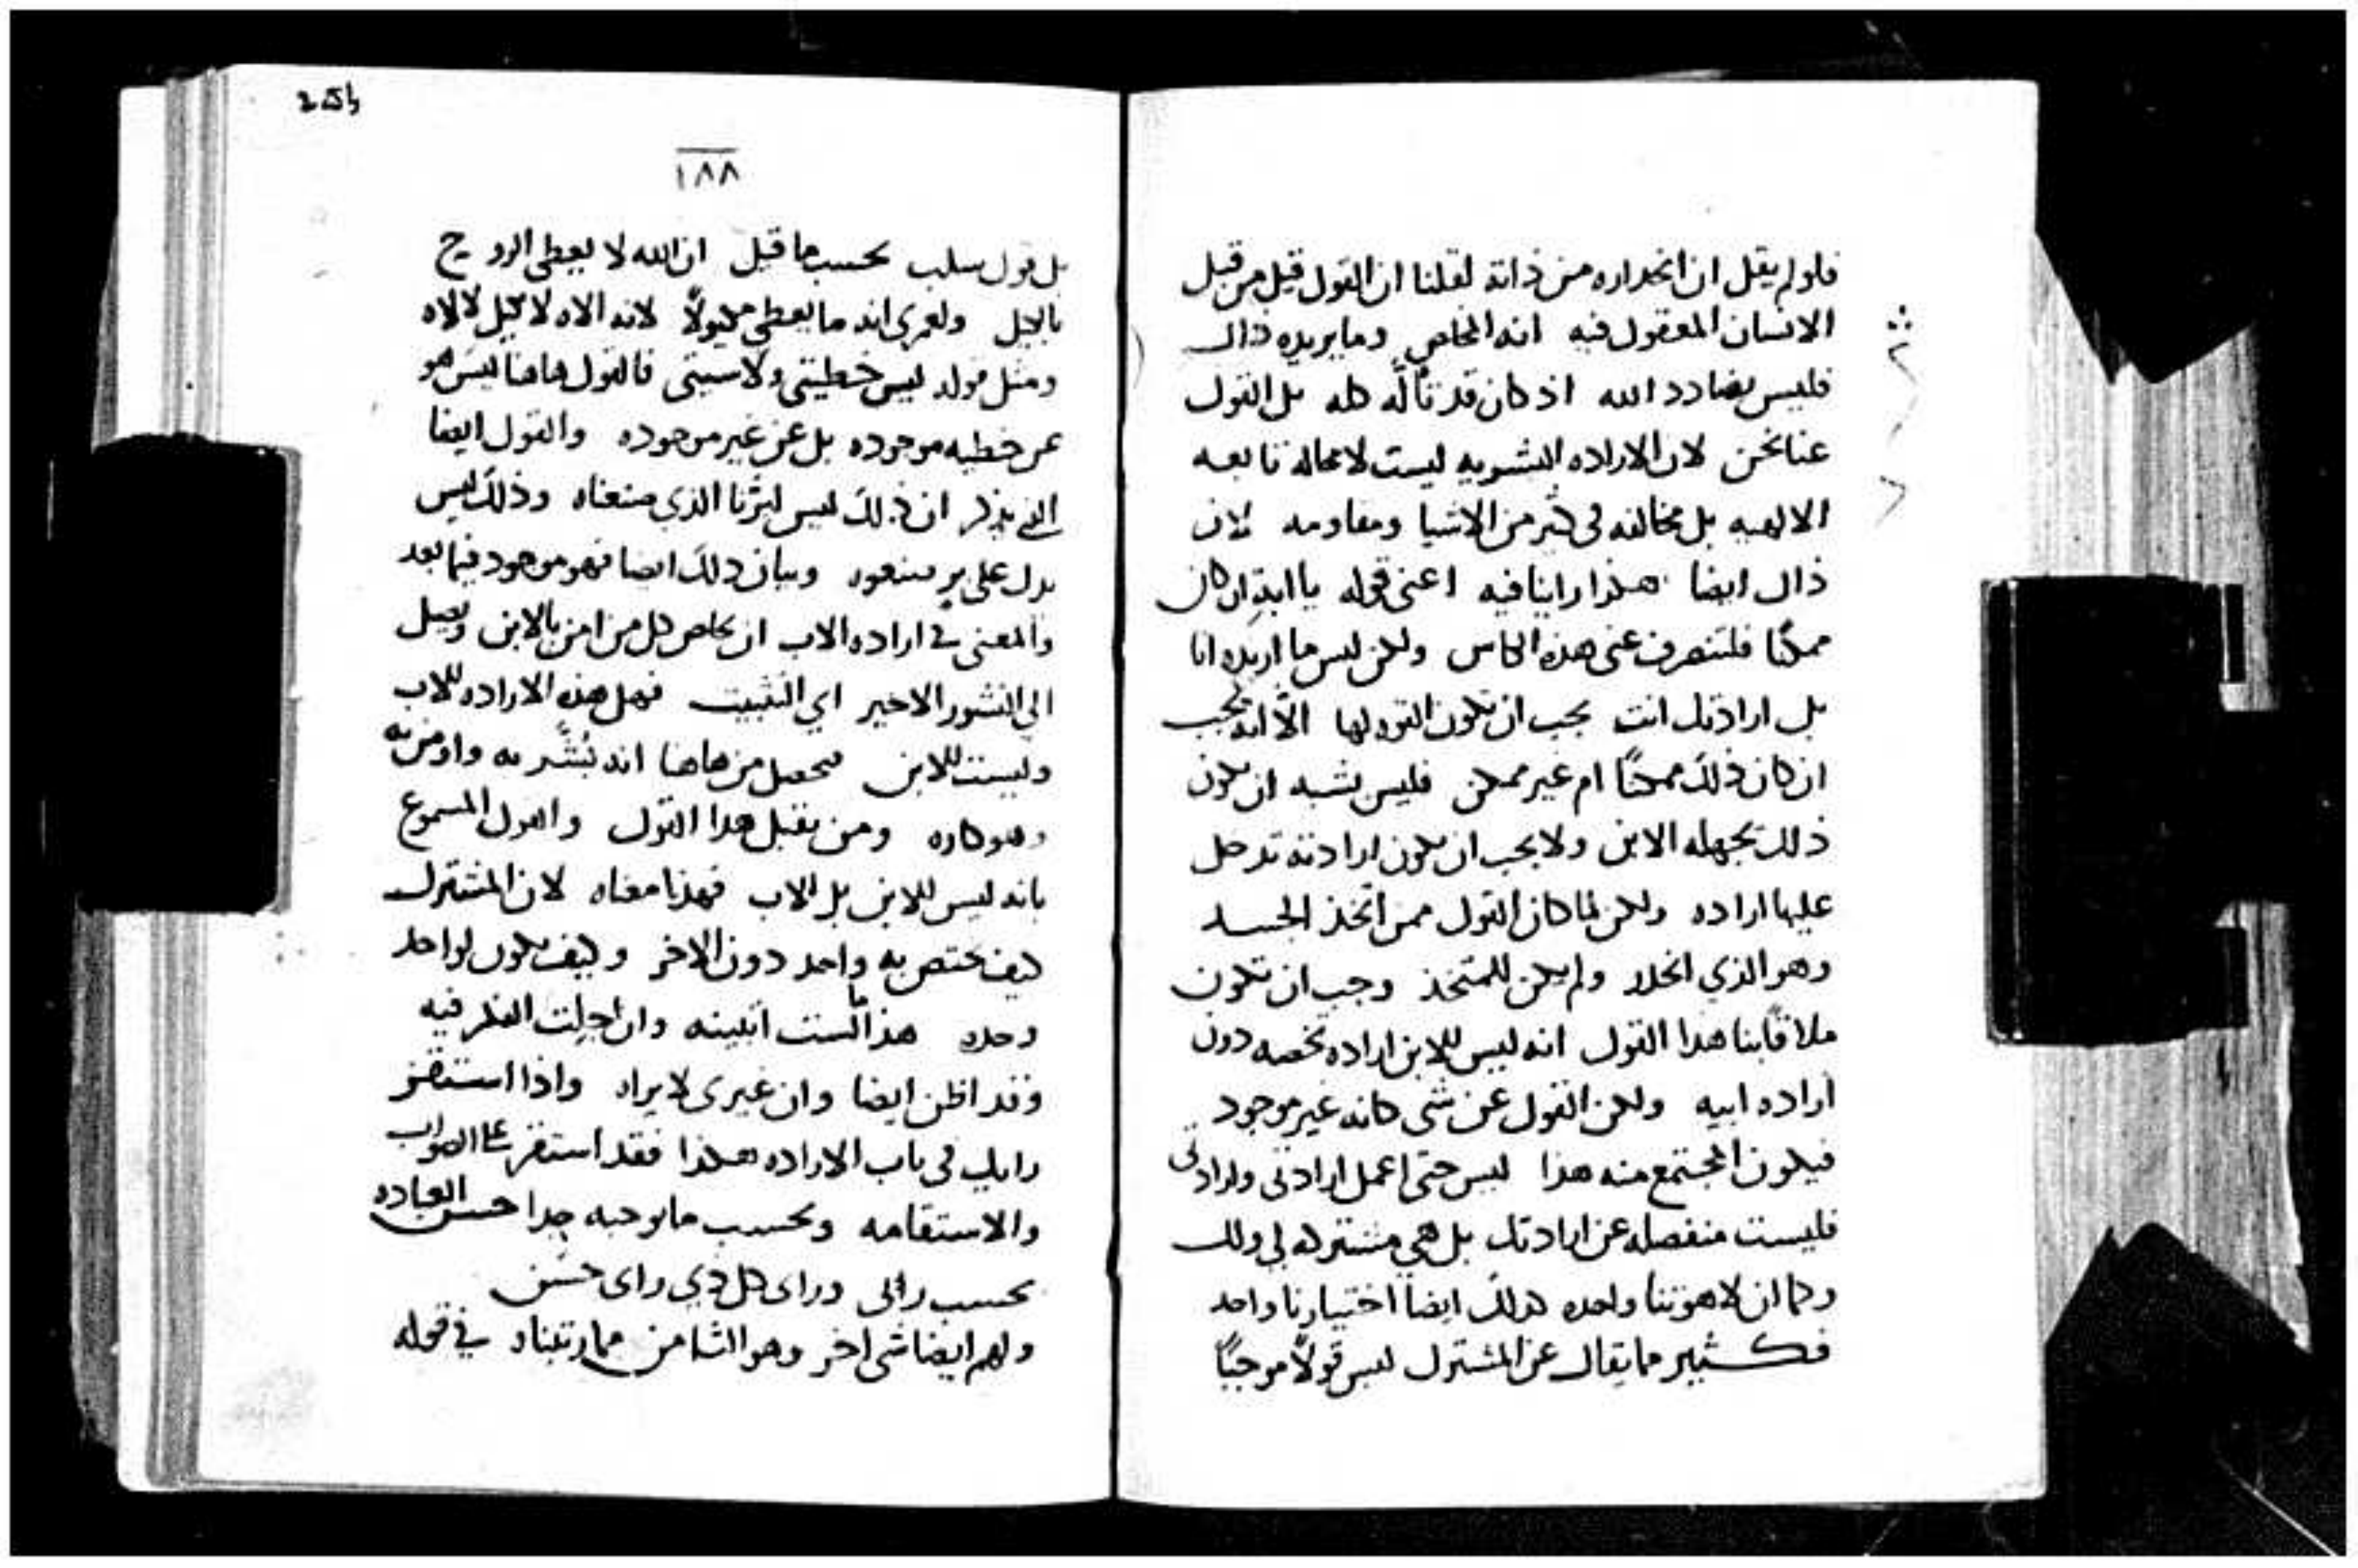 فلو لم يقل ان انحداره من ذاته لقلنا ان القول قيل من قبل
الانسان المعقول فيه انه المخلص وما يريده ذاك
فليس بضادد الله اذ كان قد تألّه كله بل القول
عنا نحن لان الاراده البشريه ليست لا محاله تابعه
الالهيه بل مخالفه في كثير من الاشيا ومقاومه لان
ذاك ايضا هكذا راينا فيه اعني قوله يا ابة ان كان
ممكنًا فلتنصرف عني هذه الكاس ولكن ليس ما اريده انا
بل ارادتك انت يجب ان تكون القوه لها الّا انه يجب
ان كان ذلك ممكنًا ام غير ممكن فليس يشبه ان يكون
ذلك يجهله الابن ولا يجب ان يكون ارادته تدخل
عليها اراده ولكن لما كان القول ممن اتخذ الجسد
وهو الذي انحدر ولم يكن للمتخذ وجب ان تكون
ملاقاتنا هدا القول انه ليس للابن اراده تخصه دون
اراده ابيه ولكن القول عن شي كانه غير موجود
فيكون المجتمع منه هذا ليس حتى اعمل ارادتي وارادتي
فليست منفصله عن ارادتك بل هي مشتركه لي ولك
وكما ان لاهوتنا واحده كذلك ايضا اختيارنا واحد
فكثير مما يقال عن المشترك ليس قولًا موجبًا
١٨٨
بل قول سلب بحسب ما قيل ان الله لا يعطي الروح
بالكيل ولعمري انه ما يعطي مكيولًا لانه الاه لا كيل لالاه
ومثل قوله ليس خطيتي ولا سيتي فالقول هاهنا ليس هو
عن خطيه موجوده بل عن غير موجوده والقول ايضا
الذي يذكر ان ذلك ليس لبرّنا الذي صنعناه وذلك ليس
يدل على بر صنعوه وبيان ذلك ايضا فهو موجود فيما بعد
والمعنى في اراده الاب ان يخلص كل من امن بالابن ويصل
الى النشور الاخير اي التثبيت فهل هذه الاراده للاب
وليست للابن فيحصل من هاهنا انه بُشّر به واومن به
وهو كاره ومن يقبل هدا القول والقول المسموع
بانه ليس للابن بل للاب فهذا معناه لان المشترك
كيف يختص به واحد دون الاخر وكيف يكون لواحد
وحده هذا ما لست اتبينه وان اجلت الفكر فيه
وقد اظن ايضا وان غيري لا يراه واذا استقر
رايك في باب الاراده هكذا فقد استقر على الصواب
والاستقامه وبحسب ما يوجبه جدا حسن العباده
بحسب رائي وراى كل ذي راى حسن
ولهم ايضا شي اخر وهو الثامن مما رتبناه في قوله